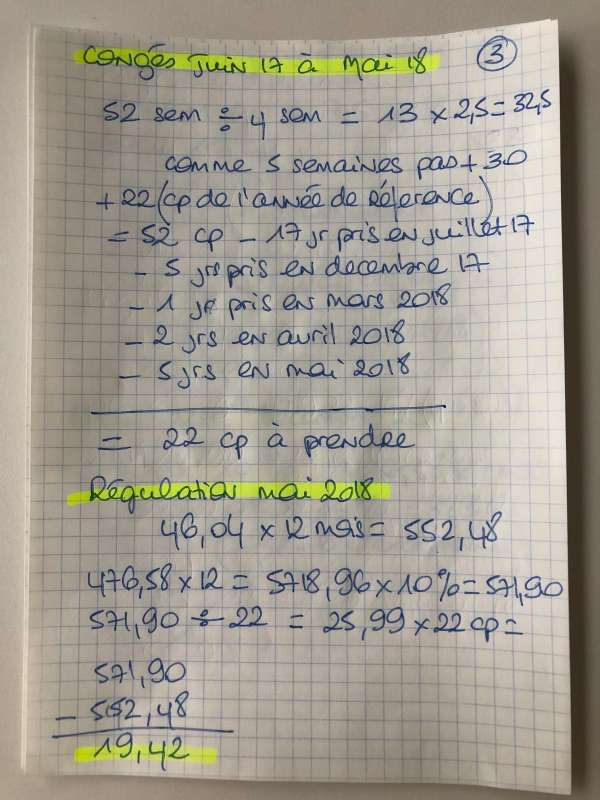 congés juin 17 à mai 18 3
52 sem ÷ 4 sem = 13 x 2,5 = 32,5
comme 5 semaines pas + 30
+ 22 (cp de l'année de Réference)
= 52 cp - 17 jr pris en juillet 17
- 5 jrs pris en decembre 17
- 1 jr pris en mars 2018
- 2 jrs en avril 2018
- 5 jrs en mai 2018
= 22 cp à prendre
Régulation mai 2018
46,04 x 12 mois = 552,48
476,58 x 12 = 5718,96 x 10% = 571,90
571,90 ÷ 22 = 25,99 x 22 cp =
571,90
- 552,48
19,42